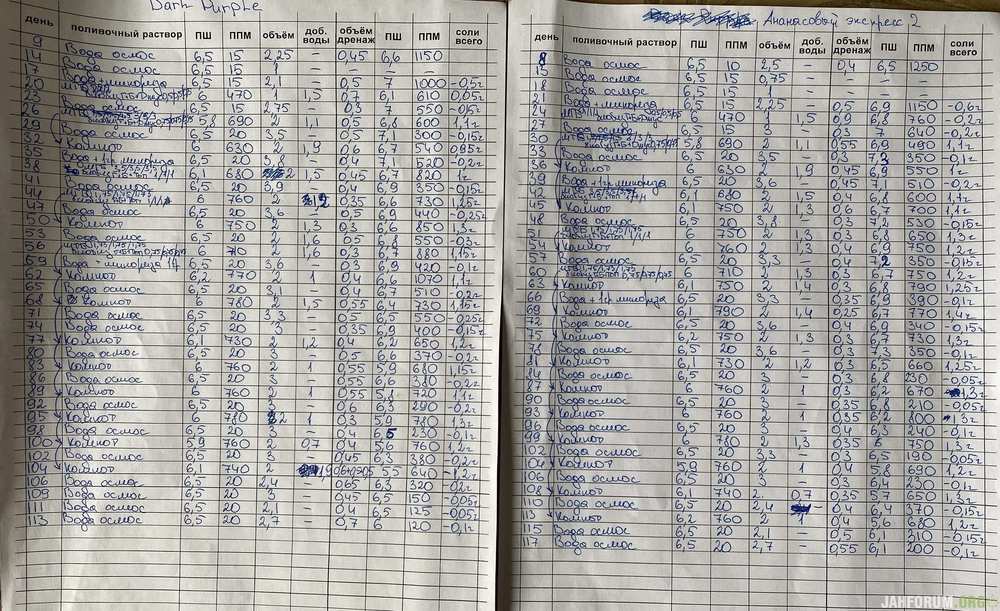 Dark Purple
день поливочный раствор ПШ ППМ объём доб. воды объём дренаж ПШ ППМ соли всего
9 Вода осмос 6,5 15 2,25 – 0,45 6,6 1150
14 Вода осмос 6,5 15 1 – – – –
17 Вода+микориза 6,5 15 2,1 – 0,5 7 1000 -0,5г
20 6 470 1 1,5 0,7 6,1 610 0,05г
23 Вода осмос 6,5 15 2,75 – 0,3 7 550 -0,5г
26 5,8 690 2 1,1 0,5 6,8 600 1,1г
29 Вода осмос 6,5 20 3,5 – 0,5 7,1 300 -0,15г
32 Компот 6 630 2 1,9 0,6 6,7 540 0,95г
35 Вода + 1гр микориза 6,5 20 3,8 – 0,4 7,1 520 -0,2г
38 6,1 680 2 1,5 0,45 6,7 820 1г
41 Вода осмос 6,5 20 3,9 – 0,4 6,9 350 -0,15г
44 6 760 2 1,2 0,35 6,6 730 1,25г
47 Вода осмос 6,5 20 3,6 – 0,5 6,9 440 -0,25г
50 Компот 6 750 2 1,3 0,3 6,6 850 1,3г
53 Вода осмос 6,5 20 0,5 6,8 550 -0,3г
56 6 710 2 1,6 0,3 6,7 880 1,15г
59 Вода + микориза 1г 6,5 20 3,6 – 0,3 6,9 420 -0,1г
62 Компот 6,2 770 2 1 0,4 6,6 1070 1,1г
65 Вода осмос 6,5 20 3,1 – 0,4 6,7 510 -0,2г
68 Компот 6 780 2 1,5 0,55 6,4 730 1,15г
71 Вода осмос 6,5 20 3,3 – 0,5 6,5 550 -0,25г
74 Вода осмос 6,5 20 3 – 0,35 6,9 400 -0,15г
77 Компот 6,1 730 2 1,2 0,4 6,2 650 1,2г
80 Вода осмос 6,5 20 3 – 0,5 6,6 370 -0,2г
83 Компот 6 760 2 1 0,55 5,9 680 1,15г
86 Вода осмос 6,5 20 3 – 0,55 6,6 380 -0,2г
89 Компот 6 760 2 1 0,55 5,8 720 1,1г
92 Вода осмос 6,5 20 3 – 0,6 6,3 290 -0,2г
95 Компот 6 780 2 1 0,3 5,9 780 1,3г
98 Вода осмос 6,5 20 3 – 0,4 6,5 230 -0,1г
100 Компот 5,9 760 2 0,7 0,4 5,6 760 1,2г
102 Вода осмос 6,5 20 3 – 0,45 6,3 380 -0,2г
104 Компот 6,1 740 2 5,5 640 1,2г
106 Вода осмос 6,5 20 2,4 – 0,65 6,3 320 -0,2г
109 Вода осмос 6,5 20 3 – 0,45 6,5 150 -0,05г
111 Вода осмос 6,5 20 2,1 – 0,4 6,5 125 -0,05г
113 Вода осмос 6,5 20 2,7 – 0,7 6 120 -0,1г
Ананасовый экспресс 2
день поливочный раствор ПШ ППМ объём доб. воды объём дренаж ПШ ППМ соли всего
8 Вода осмос 6,5 10 2,5 – 0,4 6,5 1250
15 Вода осмос 6,5 15 0,75 – – – –
18 Вода осмос 6,5 15 1 – – – –
21 Вода+микориза 6,5 15 2,25 – 0,5 6,9 1150 -0,6г
24 6 470 1 1,5 0,9 6,8 760 -0,2г
27 Вода осмос 6,5 15 3 – 0,3 7 640 -0,2г
30 5,8 690 2 1,1 0,55 6,9 490 1,1г
33 Вода осмос 6,5 20 3,5 – 0,3 7,2 350 -0,1г
36 Компот 6 630 2 1,9 0,45 6,9 550 1г
39 Вода+1гр микориза 6,5 20 3,6 – 0,45 7,1 510 -0,2г
42 6,1 680 2 1,5 0,4 6,8 600 1,1г
45 Компот 6,1 750 2 1,3 0,6 6,7 700 1,1г
48 Вода осмос 6,5 20 3,8 – 0,3 7,2 530 -0,15г
51 6 750 2 1,3 0,3 6,8 650 1,3г
54 Компот 6 760 2 1,3 0,4 6,9 750 1,2г
57 Вода осмос 6,5 20 3,3 – 0,4 7,2 350 -0,15г
60 6 710 2 1,3 0,3 6,7 750 1,2г
63 Компот 6,1 750 2 1,4 0,3 6,8 790 1,25г
66 Вода + 1гр микориза 6,5 20 3,3 – 0,35 6,9 390 -0,1г
69 Компот 6,1 790 2 1,4 0,25 6,7 770 1,4г
72 Вода осмос 6,5 20 3,6 – 0,4 6,9 340 -0,15г
75 Компот 6,2 750 2 1,3 0,3 6,7 730 1,3г
78 Вода осмос 6,5 20 3,6 – 0,3 7,3 350 -0,1г
81 Компот 6,1 730 2 1,2 0,3 6,5 660 1,25г
84 Вода осмос 6,5 20 3 – 0,3 6,8 230 -0,05г
87 Компот 6 760 2 – 0,3 6,2 670 1,3г
90 Вода осмос 6,5 20 3 – 0,35 6,8 210 -0,05г
93 Компот 6 760 2 1 0,35 6,2 800 1,3г
96 Вода осмос 6,5 20 3 – 0,4 6,3 240 -0,1г
99 Компот 6 780 2 1,3 0,35 6 750 1,3г
102 Вода осмос 6,5 20 3,3 – 0,3 6,5 190 -0,05г
104 Компот 5,9 760 2 1 0,4 5,8 690 1,2г
106 Вода осмос 6,5 20 3 – 0,3 6,4 230 -0,1г
108 Компот 6,1 740 2 0,7 0,35 5,7 650 1,3г
110 Вода осмос 6,5 20 2,4 – 0,4 6,4 370 -0,15г
113 Компот 6,2 760 2 1 0,4 5,6 680 1,2г
115 Вода осмос 6,5 20 2,1 – 0,5 6,1 310 -0,15г
117 Вода осмос 6,5 20 2,7 – 0,55 6,1 200 -0,1г
JAHFORUM.ORG